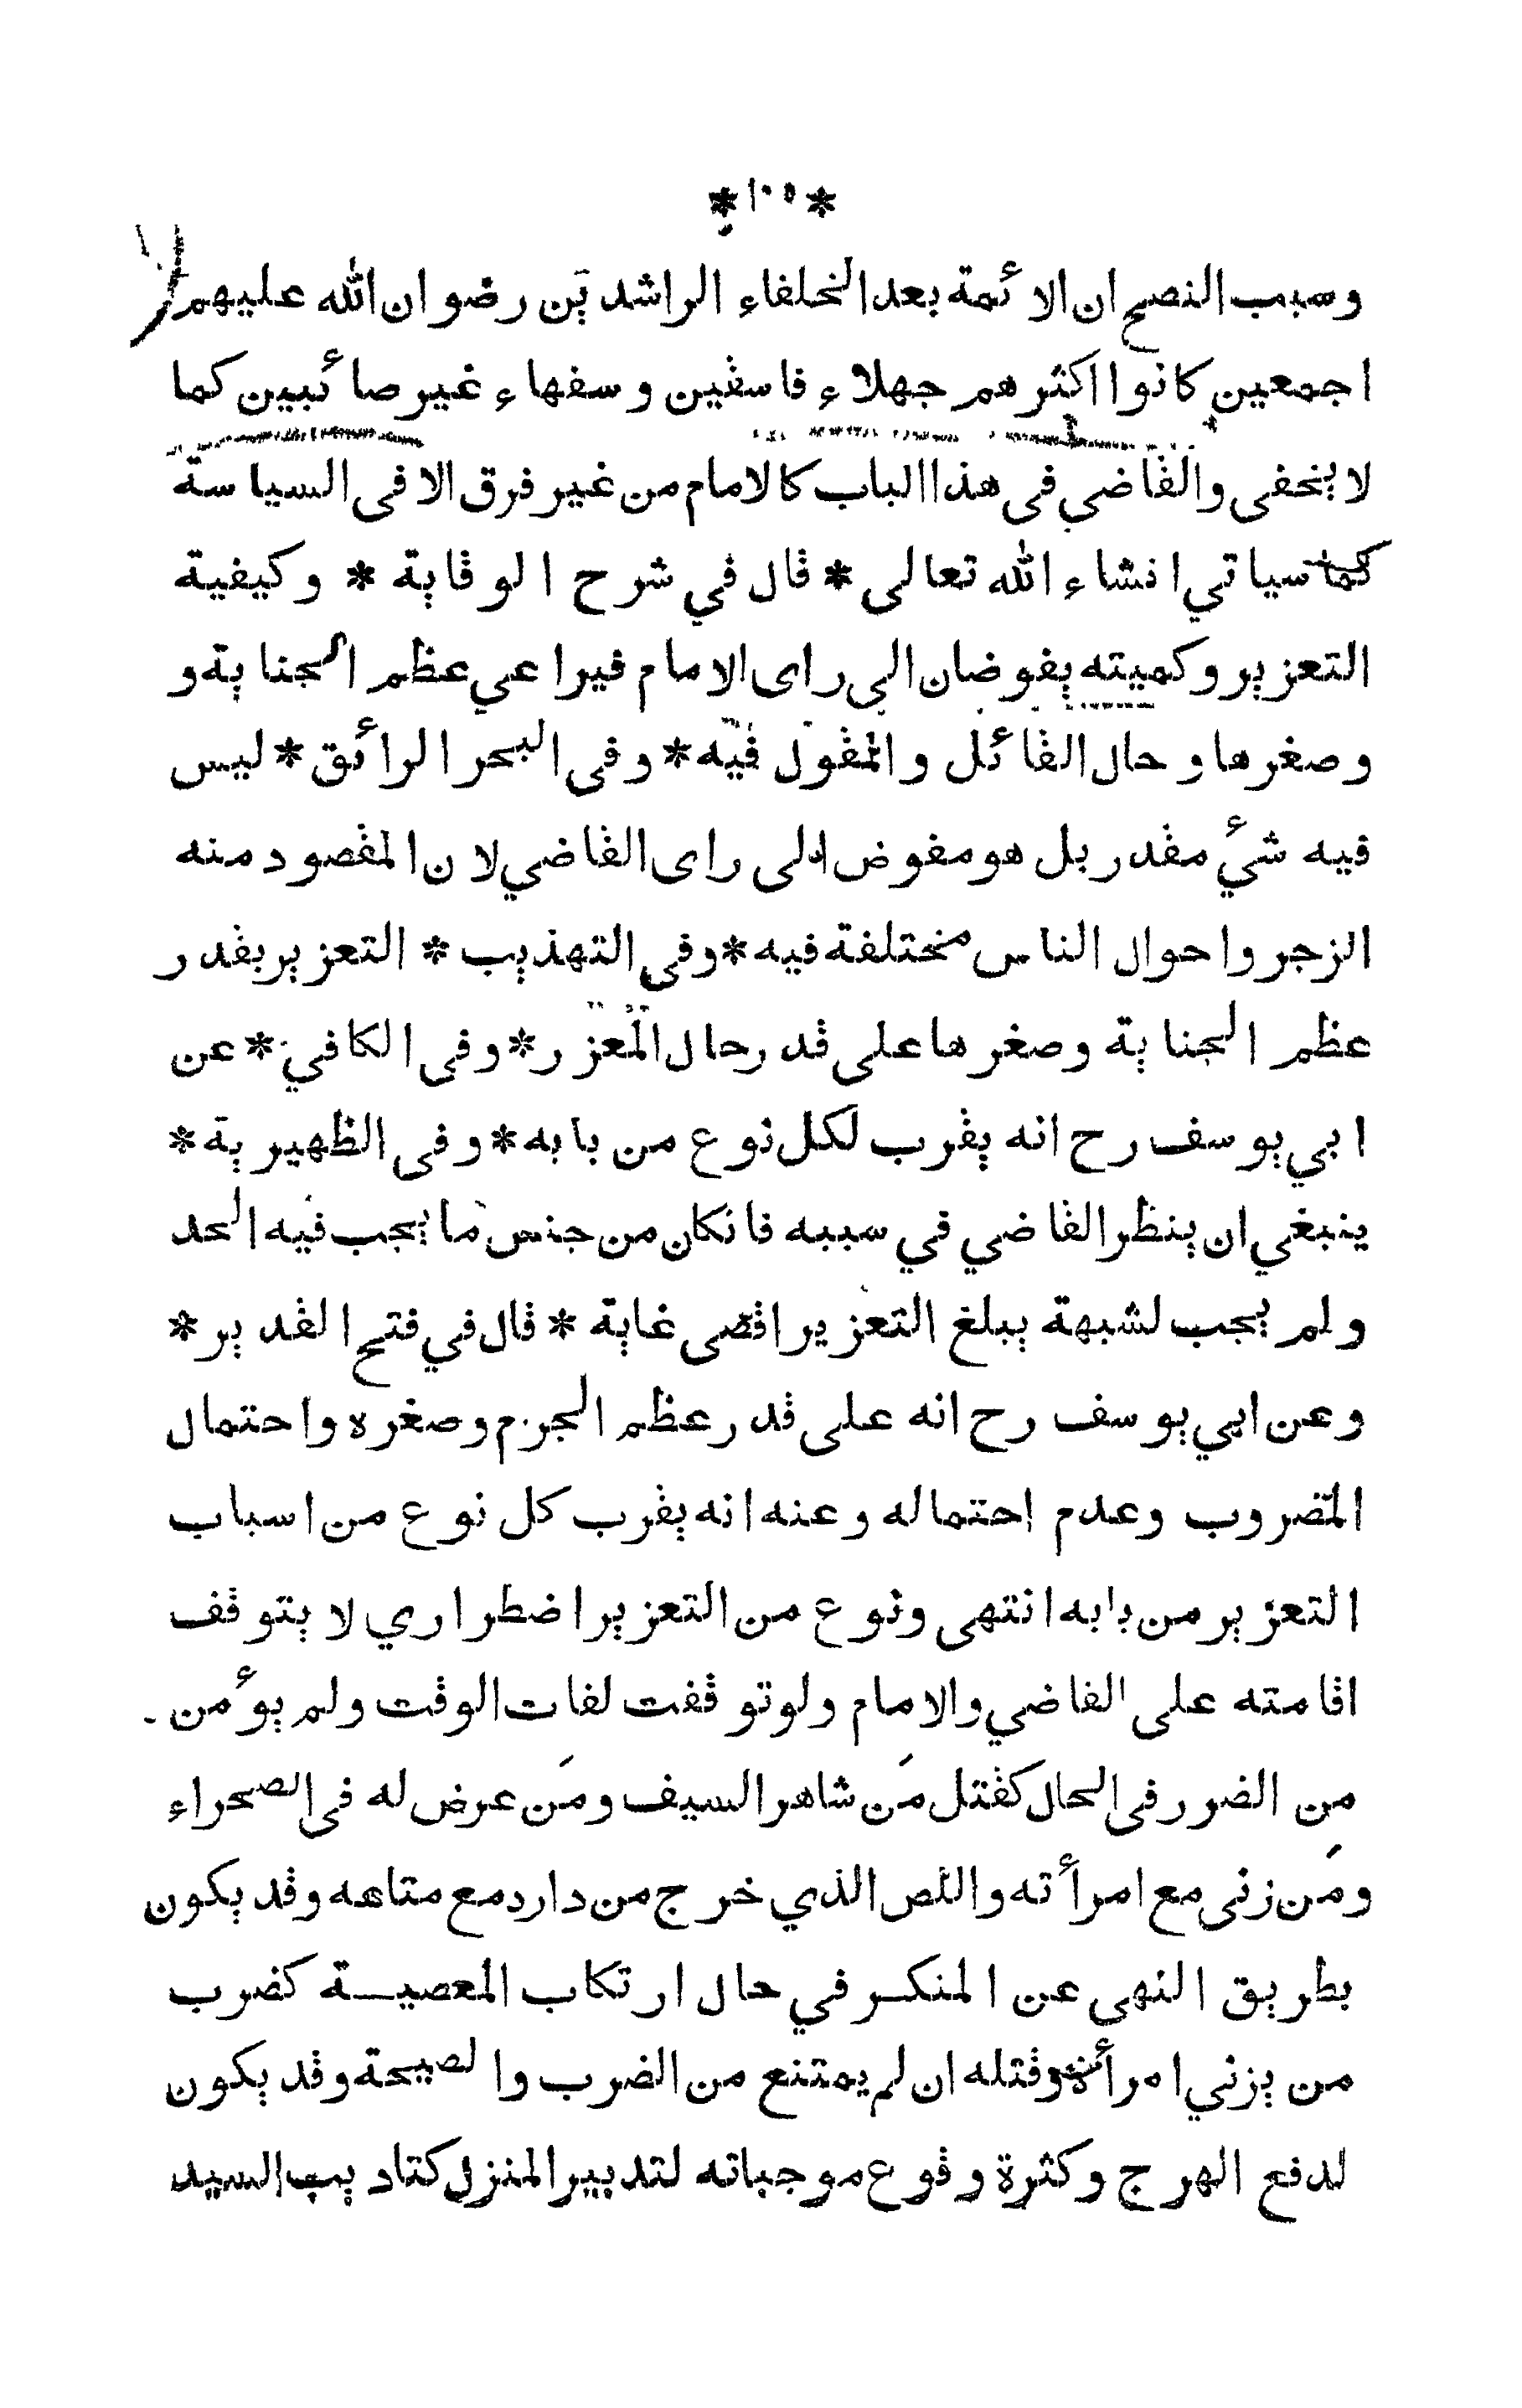 * ١٠٥ *
وسبب النصح ان الائمة بعد الخلفاء الراشدين رضوان الله عليهم
اجمعين كانوا اكثرهم جهلاء فاسقين وسفهاء غير صائبين كما
لا يخفى والقاضي في هذا الباب كالامام من غير فرق الا في السياسة
كما سياتي انشاء الله تعالى * قال في شرح الوقاية * وكيفية
التعزير وكميته يفوضان الى راى الامام فيراعي عظم الجناية و
وصغرها وحال القائل والمقول فيه * وفى البحر الرائق * ليس
فيه شئ مقدر بل هو مفوض الى راى القاضي لان المقصود منه
الزجر واحوال الناس مختلفة فيه * وفى التهذيب * التعزير بقدر
عظم الجناية وصغرها على قدر حال المعزر * وفى الكافي * عن
ابي يوسف رح انه يقرب لكل نوع من بابه * وفى الظهيرية *
ينبغي ان ينظر القاضي في سببه فانكان من جنس ما يجب فيه الحد
ولم يجب لشبهة يبلغ التعزير اقصى غاية * قال في فتح القدير *
وعن ابي يوسف رح انه على قدر عظم الجرم وصغره واحتمال
المضروب وعدم احتماله وعنه انه يقرب كل نوع من اسباب
التعزير من بابه انتهى ونوع من التعزير اضطراري لا يتوقف
اقامته على القاضي والامام ولو توقفت لفات الوقت ولم يؤمن
من الضرر فى الحال كقتل مَن شاهر السيف ومَن عرض له فى الصحراء
ومَن زنى مع امرأته واللص الذي خرج من دارد مع متاعه وقد يكون
بطريق النهى عن المنكر في حال ارتكاب المعصية كضرب
من يزني امرأة وقتله ان لم يمتنع من الضرب والصيحة وقد يكون
لدفع الهرج وكثرة وقوع موجباته لتدبير المنزل كتاديب السيد